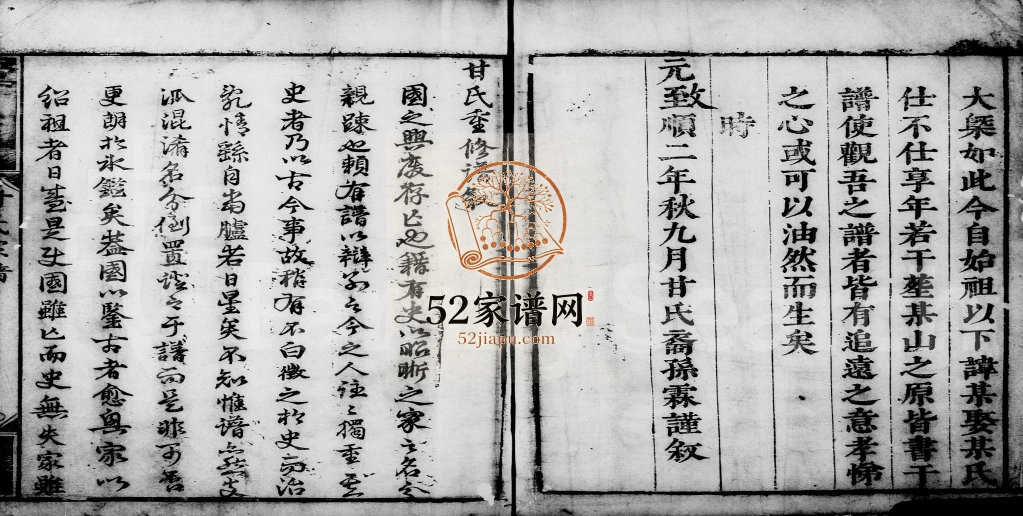 大槩如此今自始祖以下諱某娶某氏
仕不仕享年若干塟某山之原皆書于
譜使觀吾之譜者皆有追遠之意孝悌
之心或可以油然而生矣
時
元致順二年秋九月甘氏裔孫霖謹叙
甘氏重修譜
國之興废存亡也藉有史以昭晰之家之名分
親踈也賴有譜以辯別之今之人往〻獨重
史者乃以古今事故稍有不白徵之於史而治
乱情繇自當臚若日星矣不知惟譜
派混淆名分倒置證之于譜而是非可否
更朗於氷鑑矣葢國以鑒古者愈與家以
紹祖者日盛是史國雖亡而史無失家雖
52家谱网
52jiapu.com